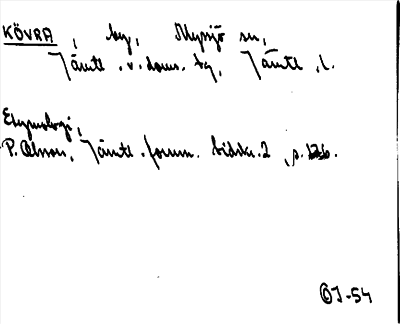 KÖVRA, by, Myssjö sn,
Jämtl. v. doms. tg, Jämtl. l.
Etymologi,
P. Olsson, Jämtl. fornm. tidskr. 2, s. 126.
OJ-54